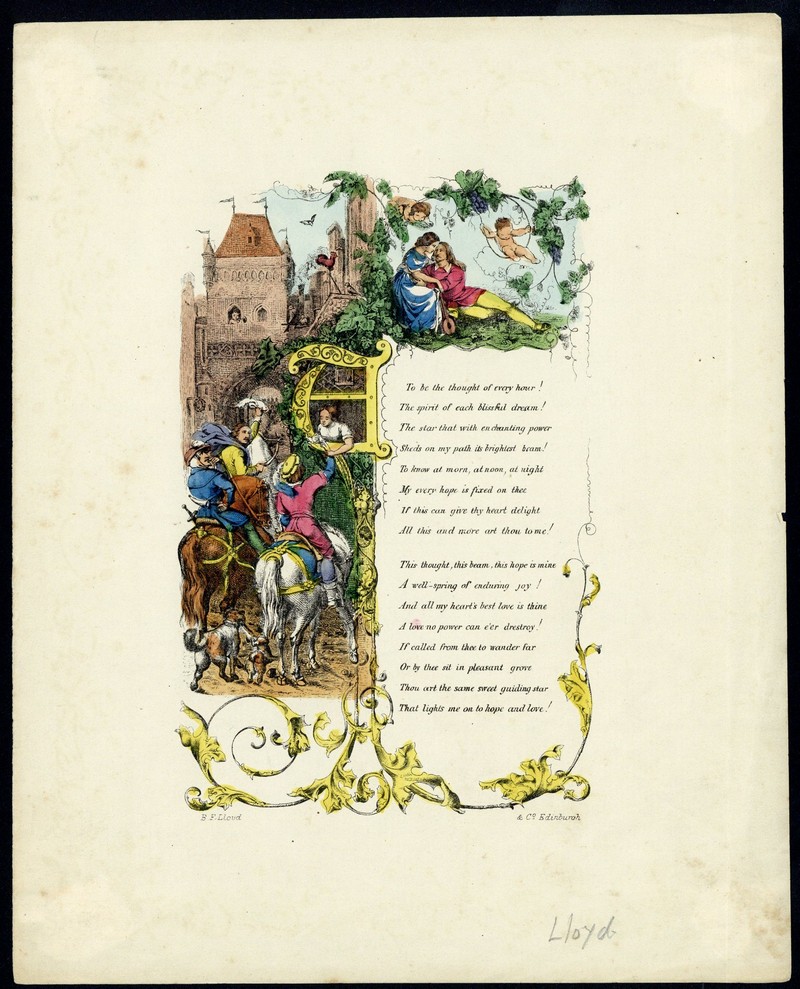 To be the thought of every hour!
The spirit of each blissful dream!
The star that with enchanting power
Sheds on my path its brightest beam!
To know at morn, at noon, at night
My every hope is fixed on thee
If this can give thy heart delight
All this and more art thou to me!
This thought, this beam, this hope is mine
A well-spring of enduring joy!
And all my heart's best love is thine
A love no power can e'er drestroy!
If called from thee to wander far
Or by thee sit in pleasant grove
Thou art the same sweet guiding star
That lights me on to hope and love!
B. F. Lloyd & Co. Edinburgh
Lloyd